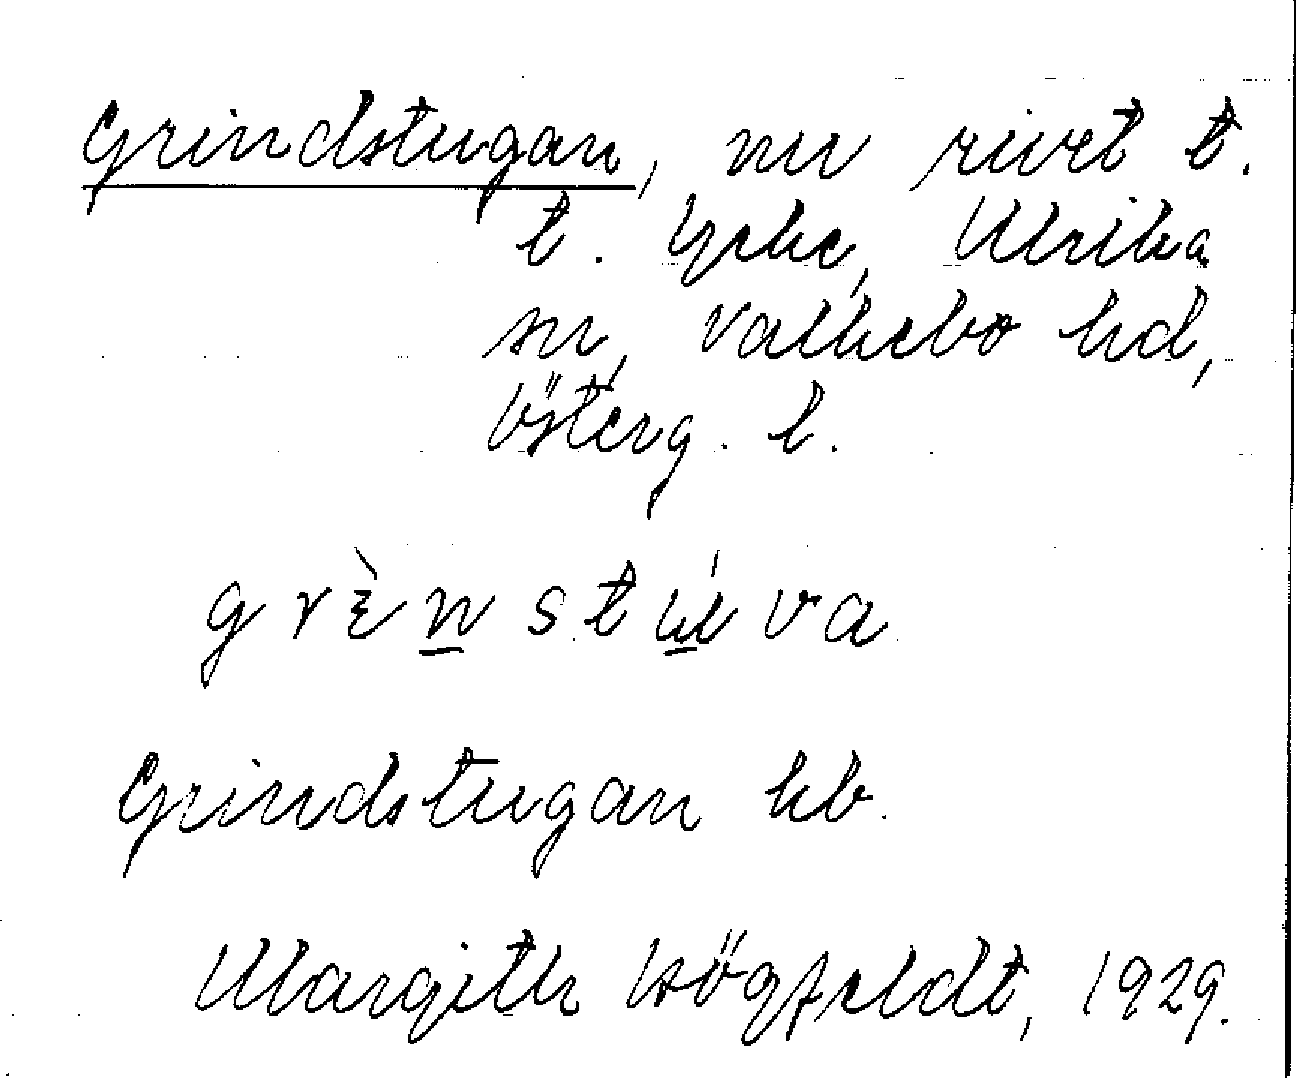 Grindstugan, nu rivet t.
t. Ycke, Ulrika
sn, Valkebo hd,
Österg. l.
grɛ̀n̲stú̲va
Grindstugan kb.
Margith Högfeldt, 1929.